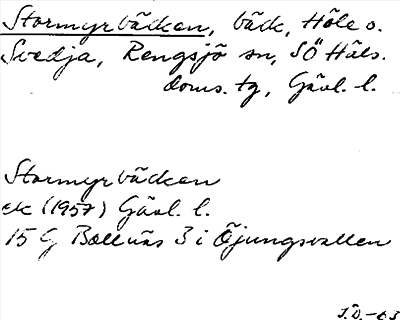 Stormyrbäcken, bäck, Höle o.
Svedja, Rengsjö sn, SÖ Häls.
doms. tg, Gävl. l.
Stormyrbäcken
ek (1957) Gävl. l.
15 G Bollnäs 3 i Öjungsvallen
J.Ö.-63